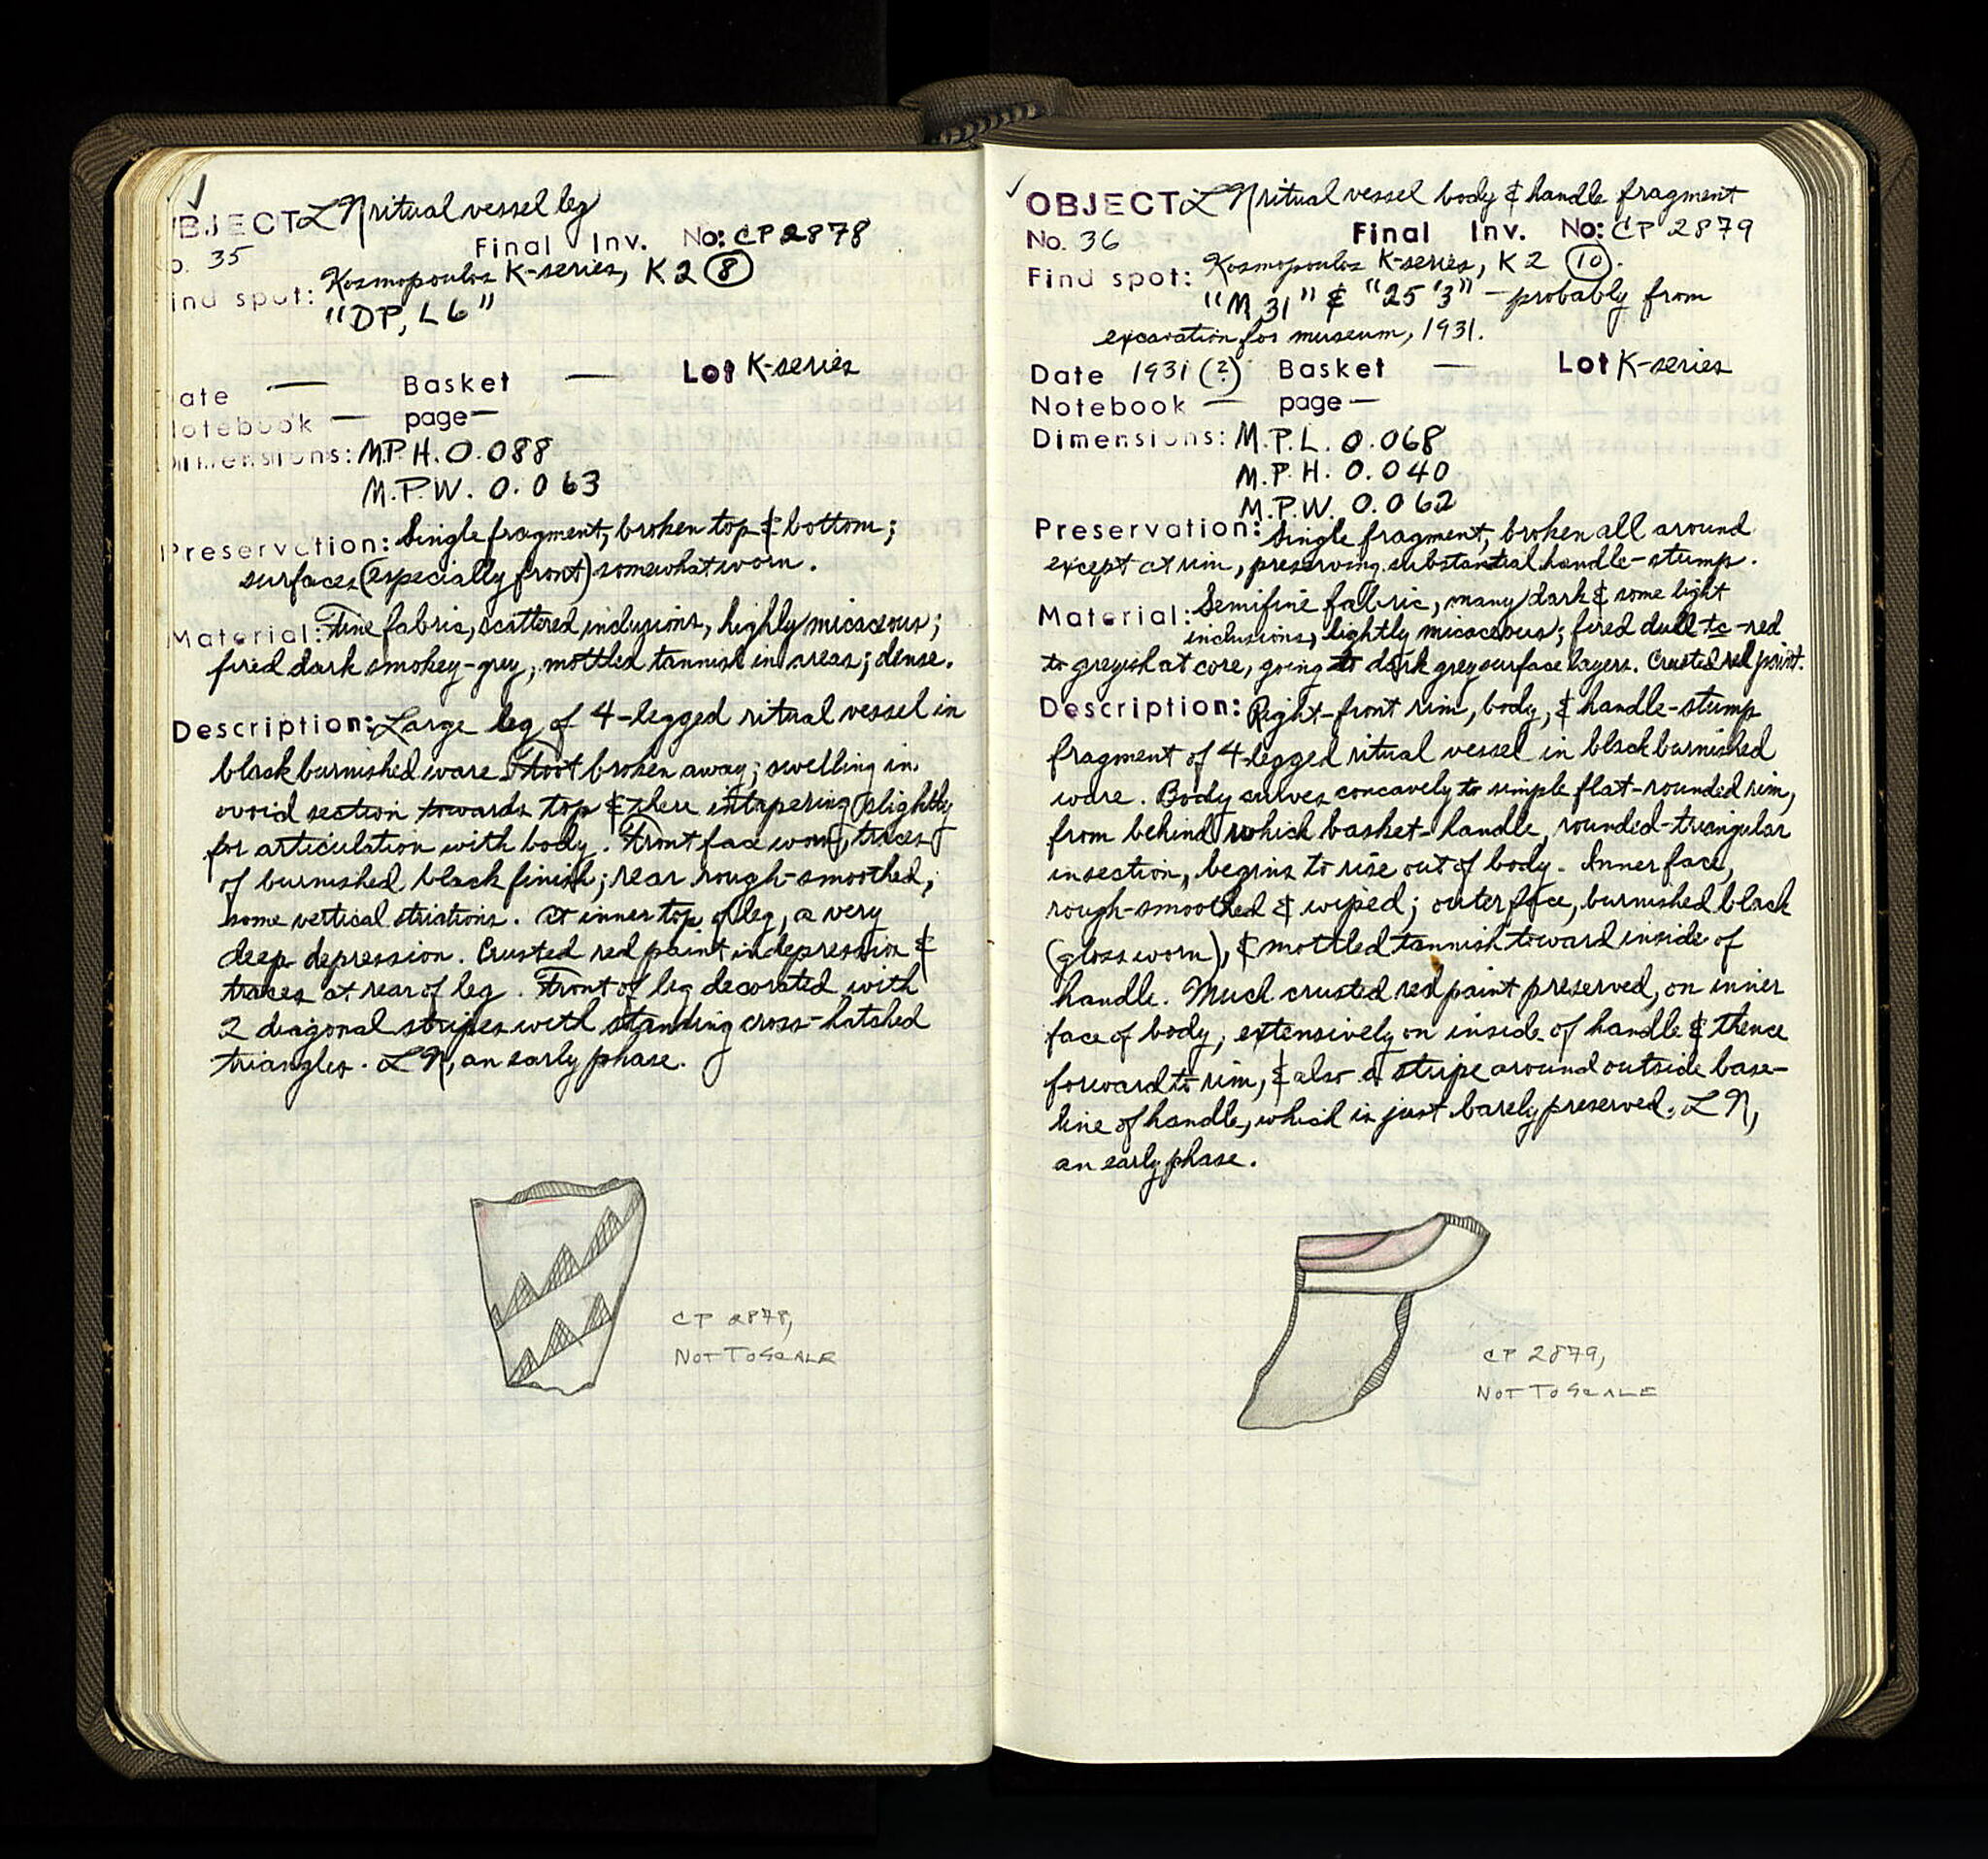 ✓
OBJECT LN ritual vessel leg
No. 35 Final Inv. No: CP 2878
Find spot: Kosmopoulos K-series, K 2 (8)
"DP, L6"
Date — Basket — Lot K-series
Notebook — page —
Dimensions: M.P.H. 0.088
M.P.W. 0.063
Preservation: Single fragment, broken top & bottom;
surfaces (especially front) somewhat worn.
Material: Fine fabric, scattered inclusions, highly micaceous;
fired dark smokey-grey, mottled tannish in areas; dense.
Description: Large leg of 4-legged ritual vessel in
black burnished ware. Foot broken away; swelling in
ovoid section towards top & there intapering slightly
for articulation with body. Front face worn, traces
of burnished black finish; rear rough-smoothed,
some vertical striations. At inner top of leg, a very
deep depression. Crusted red paint in depression &
traces at rear of leg. Front of leg decorated with
2 diagonal stripes with standing cross-hatched
triangles. LN, an early phase.
CP 2878,
NOT TO SCALE
✓
OBJECT: LN ritual vessel body & handle fragment
No. 36 Final Inv. No: CP 2879
Find spot: Kosmopoulos K-series, K 2 (10).
"M 31" & "25 '3" — probably from
excavation for museum, 1931.
Date 1931 (?) Basket — Lot K-series
Notebook — page —
Dimensions: M.P.L. 0.068
M.P.H. 0.040
M.P.W. 0.062
Preservation: Single fragment, broken all around
except at rim, preserving substantial handle-stump.
Material: Semifine fabric, many dark & some light
inclusions, lightly micaceous; fired dull-red
to greyish at core, going to dark grey surface layers. Crusted red paint.
Description: Right-front rim, body, & handle-stump
fragment of 4-legged ritual vessel in black burnished
ware. Body curves concavely to simple flat-rounded rim,
from behind which basket-handle, rounded-triangular
in section, begins to rise out of body. Inner face,
rough-smoothed & wiped; outer face, burnished black
(gloss worn), & mottled tannish toward inside of
handle. Much crusted red paint preserved, on inner
face of body, extensively on inside of handle & thence
forward to rim, & also a stripe around outside base-
line of handle, which is just barely preserved. LN,
an early phase.
CP 2879,
NOT TO SCALE